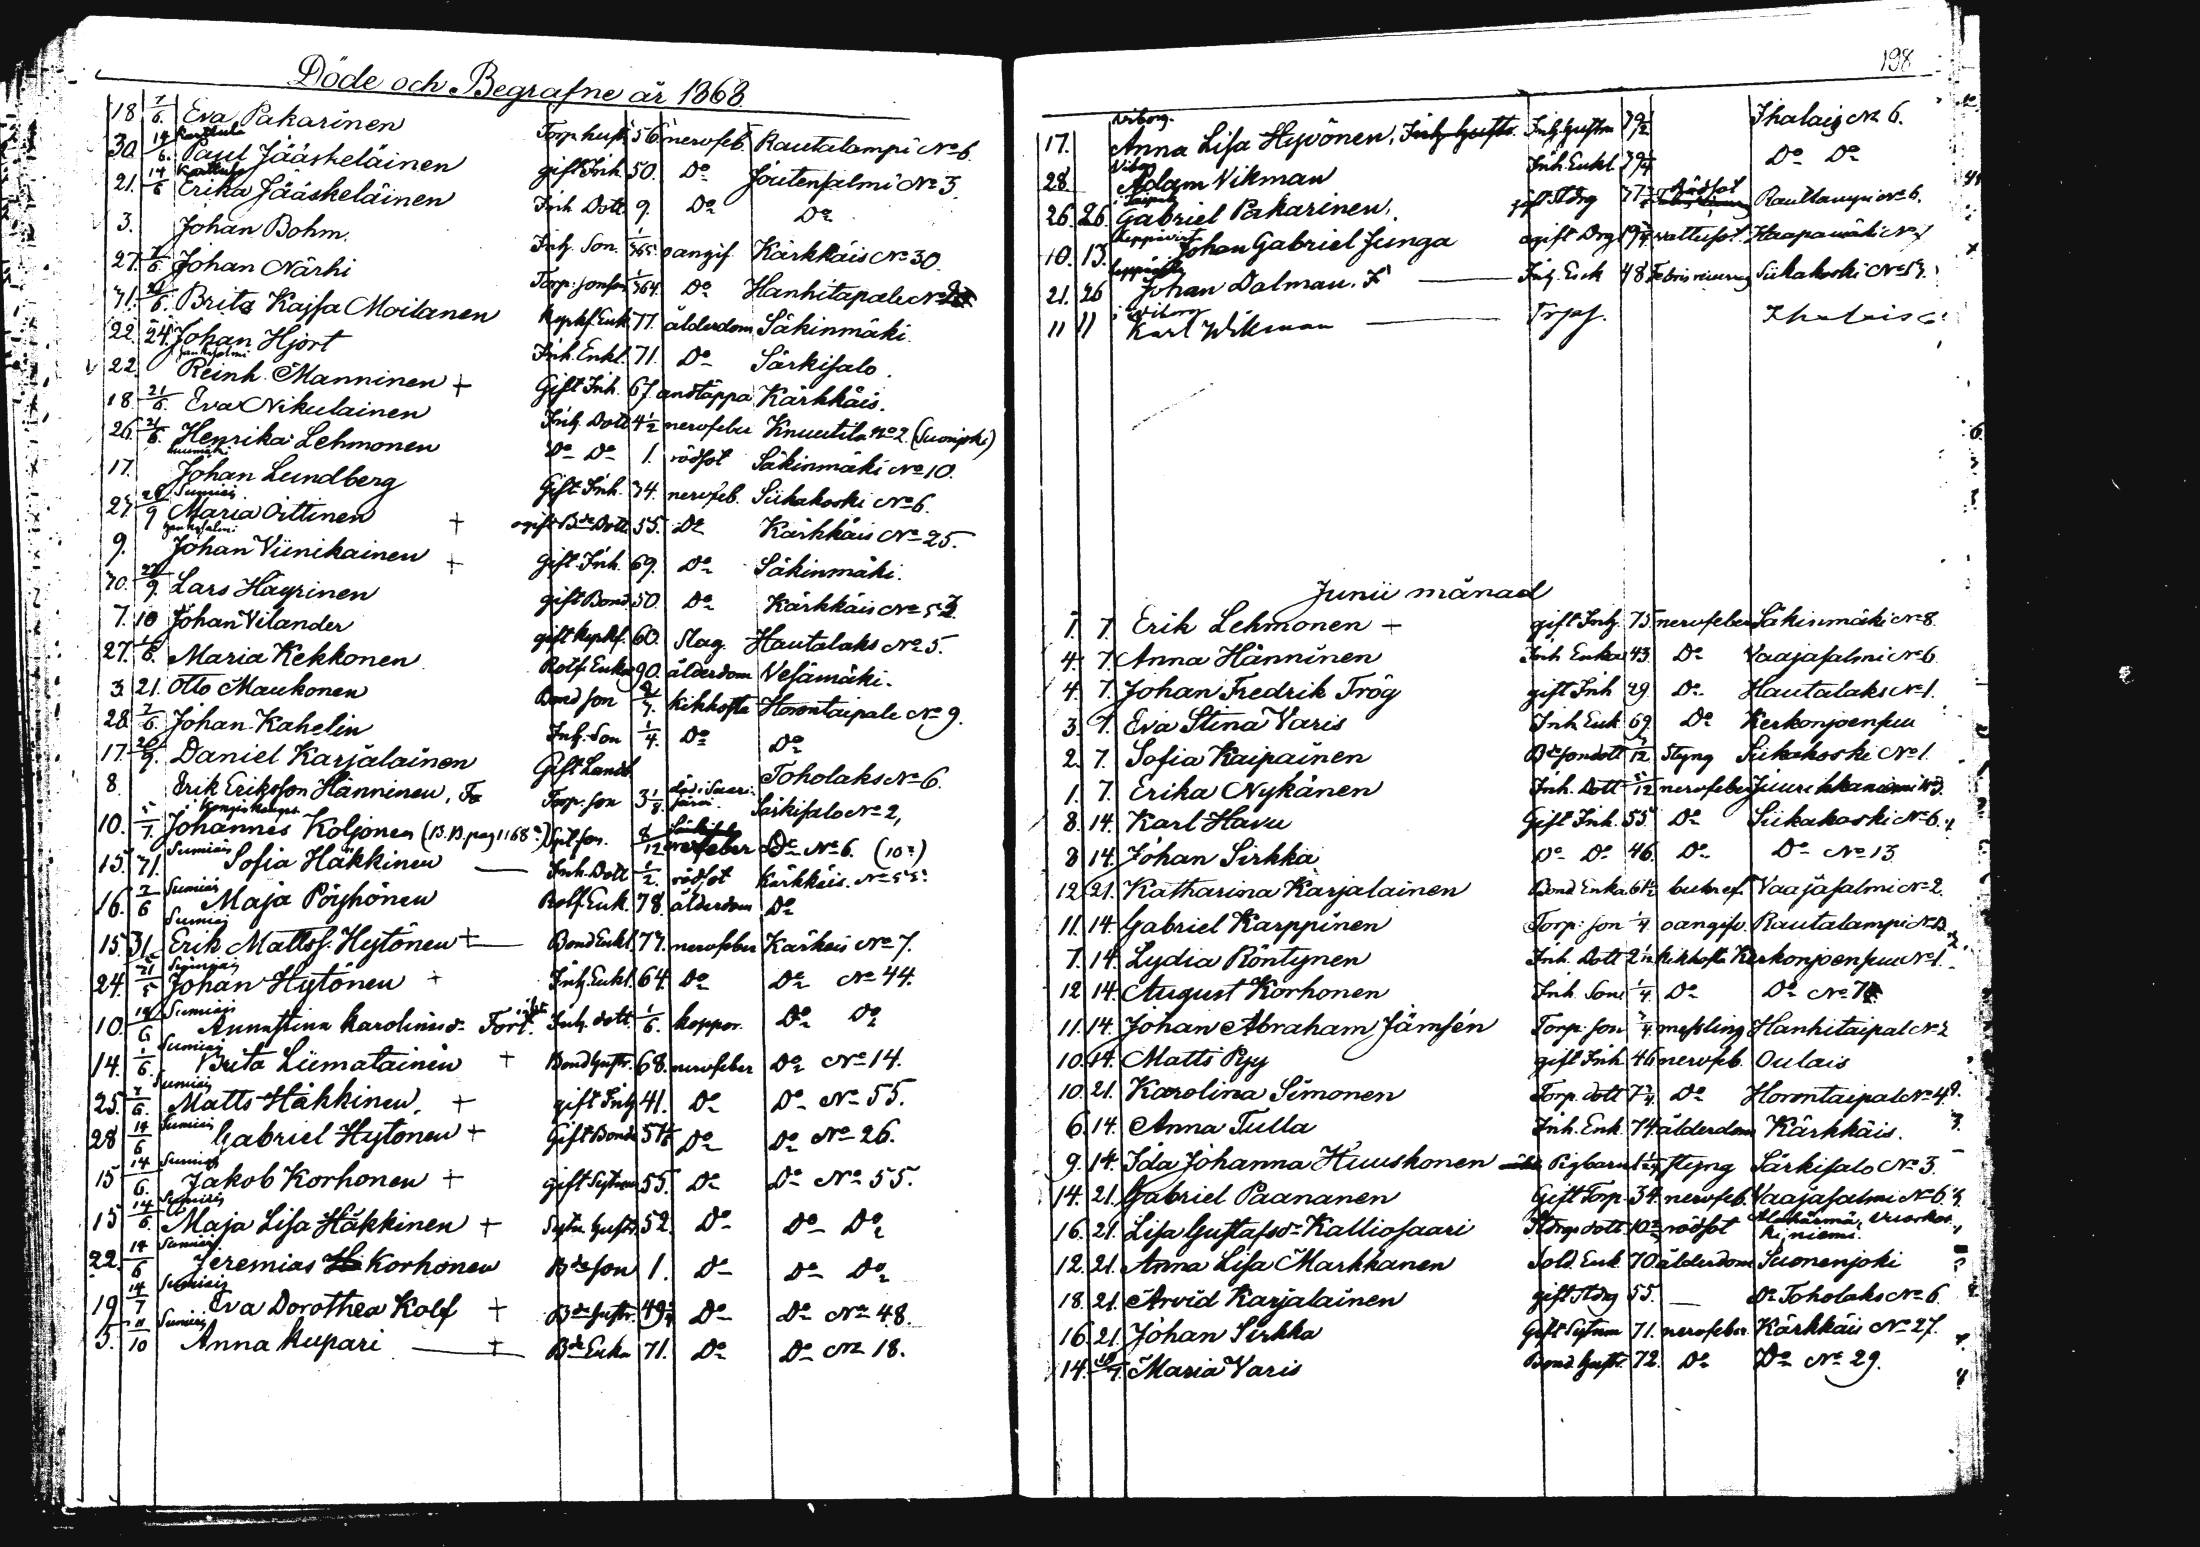 Döde och Begrafne år 1868
18 7/6. Eva Pakarinen Torp. hust. 56. nervfeb. Rautalampi No 6.
30. 14/6. Karttula Paul Jääskeläinen gift Inh. 50. Do Joutensalmi No 3.
21. 14/6 Karttula Erika Jääskeläinen Inh Dott 9. Do Do
3. Johan Bohm. Inh. Son. 1/365 oangif. Kärkkäis No 30.
27. 7/6 Johan Närhi Torp. sonson 1/364. Do Hanhitapale No
31. 21/6. Brita Kajsa Moilanen Enk. 77. ålderdom Säkinmäki.
22. 24. Johan Hjort Inh. Enkl. 71. Do Särkisalo.
22. Hankasalmi Reinh. Manninen + Gift Inh. 67. andtäppa Kärkkäis.
18. 21/6. Eva Nikulainen Inh. Dott 4 1/2 nervfeber Knuutila No 2. (Suonjoki)
26. 21/6. Henrika Lehmonen Do Do 1. rödsot Säkinmäki No 10.
17. Johan Lundberg Gift Inh. 34. nervfeb. Siikakoski No 6.
27 Sumiais Maria Oittinen + ogift Bde Dott 55. Do Kärkkäis No 25.
9. Hankasalmi Johan Viinikainen + gift Inh. 69. Do Säkinmäki.
30. Lars Häyrinen gift Bond 50. Do Kärkkäis No 53.
7. 10 Johan Vilander gift 60. Slag. Hautalaks No 5.
27. 1/6. Maria Kekkonen Rotf. Enka 90. ålderdom Vesämäki.
3. 21. Otto Maukonen Bond son kikhosta Horontaipale No 9.
28. 7/6 Johan Kahelin Inh. Son 1/4. Do Do
17. Daniel Karjalainen Gift Landb. Toholaks No 6.
8. Erik Eriksson Hänninen, Torp. son 3 1/8. död i Saarijärvi. Särkisalo No 2,
10. 5/7. i Kangaskamps Johannes Koljonen (B.B. pag 1168) son. 8/12 nervfeber Do No 6. (10?)
15. 71. Sumiais Sofia Häkkinen Inh. Dott 1/2. rödsot Kärkkäis. No 55.
16. 7/6 Sumiais Maja Pöyhönen Rotf. Enk. 78. ålderdom Do
15. 31. Sumiais Erik Mattss. Hytönen + Bond Enkl. 77. nervfeber Kärkkäis No 7.
24. 21/5 Sumiais Johan Hytönen + Inh. Enkl. 64. Do Do No 44.
10. 14/6 Sumiais Anna Stina Karolinasd. Inh. dott. 1/6. koppor. Do Do
14. 1/6. Sumiais Brita Liimatainen + Bond hustr. 68. nervfeber Do No 14.
25. 7/6. Sumiais Matts Häkkinen. + gift Inh 41. Do Do No 55.
28 14/6 Sumiais Gabriel Hytönen + Gift Bonde 51 Do Do No 26.
15 14/6. Sumiais Jakob Korhonen + gift Sytum 55. Do Do No 55.
15 14/6. Sumiais Maja Lisa Häkkinen + Sytn. hustr. 52. Do Do Do
22. 14/6 Sumiais Jeremias Korhonen Bde son 1. Do Do Do
19 14/7 Sumiais Eva Dorothea Kolf + Bde hustr. 49 Do Do No 48.
5. 11/10 Sumiais Anna Kupari + Bde Enka 71. Do Do No 18.
198
17. Viborg. Anna Lisa Hyvönen, Inh. hustr. Inh. hustru 79 Ihalais No 6.
28 Viborg Adam Vikman Inh. Enkl 79 Do Do
26. 26. i Taipale Gabriel Pakarinen, gift Stdrg 77 Rödsot Rautlampi No 6.
10. 13. Leppävirt Johan Gabriel Junga ogift Drg 19 vattusot Haapamäki No 1
21. 26 Leppävirta Johan Dalman. Inh. Enk 48 Febris recurrens Siikakoski No 13.
11 11 i Viborg Karl Wikman Ihalais
Junii månad
1. 7. Erik Lehmonen + gift Inh. 75. nervfeber Säkinmäki No 8.
4. 7. Anna Hänninen Inh. Enka 43. Do Vaajasalmi No 6.
4. 7. Johan Fredrik Trög gift Inh 29. Do Hautalaks No 1.
3. 7. Eva Stina Varis Inh. Enk. 69. Do Kerkonjoensuu
2. 7. Sofia Kaipainen Bde sondott Styng Siikakoski No 1.
1. 7. Erika Nykänen Inh. Dott 5/12 nervfeber
8. 14. Karl Havu Gift Inh. 55 Do Siikakoski No 6.
8 14. Johan Sirkka Do Do 46. Do Do No 13
12 21. Katharina Karjalainen Bond Enka 61 1/2 Vaajasalmi No 2.
11. 14. Gabriel Karppinen Torp. son 1/4 oangifv. Rautalampi No 13.
7. 14. Lydia Röntynen Inh. Dott 2 1/12 kikhosta Kerkonjoensuu No 1.
12 14. August Korhonen Inh. Son 1/4. Do Do No 7
11. 14. Johan Abraham Jämsén Torp. son 3/4. messling Hanhitaipal No 2
10. 14. Matts Pyy gift Inh 46 nervfeb. Oulais
10. 21. Karolina Simonen Torp. dott 7 3/4 Do Horontaipal No 4.
6. 14. Anna Tulla Inh. Enk. 74 ålderdom Kärkkäis.
9. 14. Ida Johanna Huuskonen Pigbarn styng Särkisalo No 3.
14. 21. Gabriel Paananen Gift Torp. 34. nervfeb. Vaajasalmi No 6
16. 21. Lisa Gustafsd. Kalliosaari dott 10 rödsot Alahärmä, Vuoskoskiniemi.
12. 21. Anna Lisa Markkanen Sold. Enk. 70 ålderdom Suonenjoki
18. 21. Arvid Karjalainen gift Stdrg 55. — Do Toholaks No 6.
16. 21. Johan Sirkka Gift Sytum 71. nervfeber. Kärkkäis No 27.
14. Maria Varis Bond. hustr. 72. Do Do No 29.